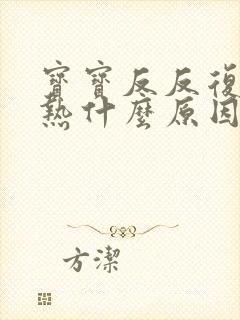 寶寶反反復
熱什麼原因
方潔